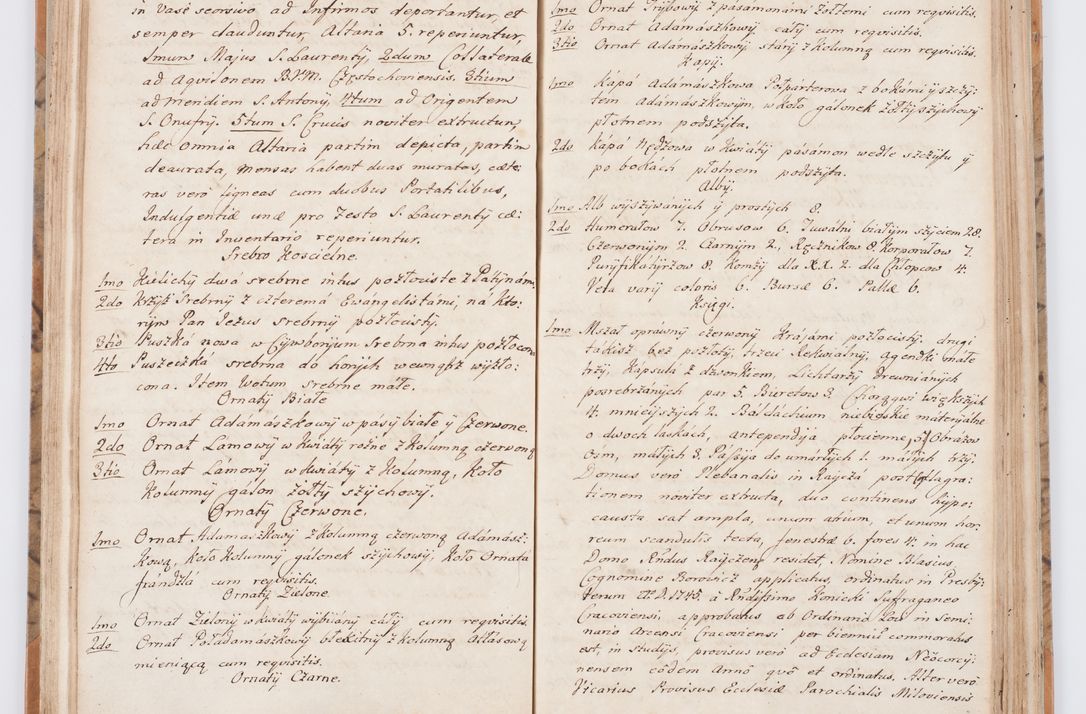 in Vase seorsivo ad Infirmos deportantur, et
semper clauduntur, Altaria 5. reperiuntur,
1mum Majus S. Laurentÿ, 2dum Collaterale
ad Aqvilonem B.V.M. Częstochoviensis. 3tium
ad meridiem S. Antonÿ, 4tum ad Origentem
S. Onufrÿ. 5tum S. Crucis noviter extructum,
hæc omnia Altaria partim depicta, partim
deaurata, mensas habent duas muratas, cæte:
ras verò ligneas cum duobus Portatilibus,
Indulgentiæ unæ pro Festo S. Laurentÿ cæ:
tera in Inventario reperiuntur.
Srebro Koscielne.
1mo Kielichÿ dwa srebrne intus pozłociste z Patÿnami
2do Krzÿż Srebrnÿ z czterema Ewangelistami, na kto:
rÿm Pan Jezus srebrnÿ pozłocistÿ.
3tio Puszka nowa w Cÿmborÿum srebrna intus pozłocona
4to Puszeczka srebrna do horÿch wewnątz wÿzło:
cona. Item Wotum srebrne małe.
Ornatÿ Białe
1mo Ornat Adamaszkowÿ w pasÿ białe ÿ Czerwone.
2do Ornat Lamowÿ w Kwiatÿ rożne z kolumną czerwoną
3tio Ornat Lamowÿ w kwiatÿ z kolumną, koło
kolumnÿ galon żołtÿ szÿchowÿ.
Ornatÿ Czerwone.
1mo Ornat Adamaszkowÿ z kolumną czerwoną Adamasz:
kową, koło kolumnÿ galonek szÿchowÿ, koło Ornata
frandzla cum reqvisitis.
Ornatÿ Zielone.
1mo Ornat Zielonÿ w kwiatÿ wÿbiianÿ całÿ cum reqvisitis.
2do Ornat Poładamaszkowÿ błękitnÿ z kolumną Atłasową
mieniącą cum reqvisitis.
Ornatÿ Czarne.
1mo Ornat Trÿpowÿ z pasamonami żołtemi cum reqvisitis.
2do Ornat Adamaszkowÿ całÿ cum reqvisitis.
3tio Ornat Adamaszkowÿ starÿ z kolumną cum reqvisitis.
Kapÿ.
1mo Kapa Adamaszkowa Połparterowa z bokami ÿ szczÿ:
tem Adamaszkowÿm, w koło galonek żołtÿ szÿchowÿ
płotnem podszÿta.
2do Kapa Nędzowa w kwiatÿ pasamon wedle szczÿtu ÿ
po bokach płotnem podszÿta.
Albÿ.
1mo Alb wÿszÿwanÿch ÿ prostÿch 8.
2do Humerałow 7. Obrusow 6. Tuwalni białÿm szÿciem 28.
Czerwonÿm 2. Czarnÿm 2., Ręcznikow 8. Korporałow 7.
Purÿfikatÿrzow 8. Komżÿ dla XX. 2. dla Chłopcow 4.
Vela varÿ coloris 6. Bursæ 6. Pallæ 6.
Księgi.
1mo Mszał oprawnÿ czerwonÿ krajami pozłocistÿ. drugi
takisz bez pozłotÿ, trzeci Rekwialnÿ, agendki małe
trzÿ, Kapsuła z dzwonkiem, Lichtarzÿ Drewnianÿch
posrebrzanÿch par 5. Biretow 3. Chorągwi większÿch
4. mnieÿszÿch 2. Baldachium niebieskie materÿalne
o dwoch laskach, antependÿa płocienne, 5. Obrazow
osm, małÿch 3. Passÿa do umarłÿch 1. małÿch trzÿ.
Domus verò Plebanalis in Raÿcza post flagra:
tionem noviter extructa, duo continens hÿpo:
causta sat ampla, unum atrium, et unum hor:
reum scandulis tecta, fenestræ 6. fores 4. in hac
Domo Rndus Raÿczens residet, Nomine Blasius,
Cognomine Borowicz applicatus, ordinatus in Presbÿ:
terum A.D. 1745. à Rndissimo Konicki Suffraganeo
Cracoviensi, approbatus ab Ordinario Loci in Semi:
nario Arcensi Cracoviensi per biennium commoratus
est, in studÿs, provisus verò ad Ecclesiam Nÿocorcÿ:
nensem eôdem Annô qvô et ordinatus, Alter verò
Vicarius Provisus Ecclesiæ Parochialis Miloviensis